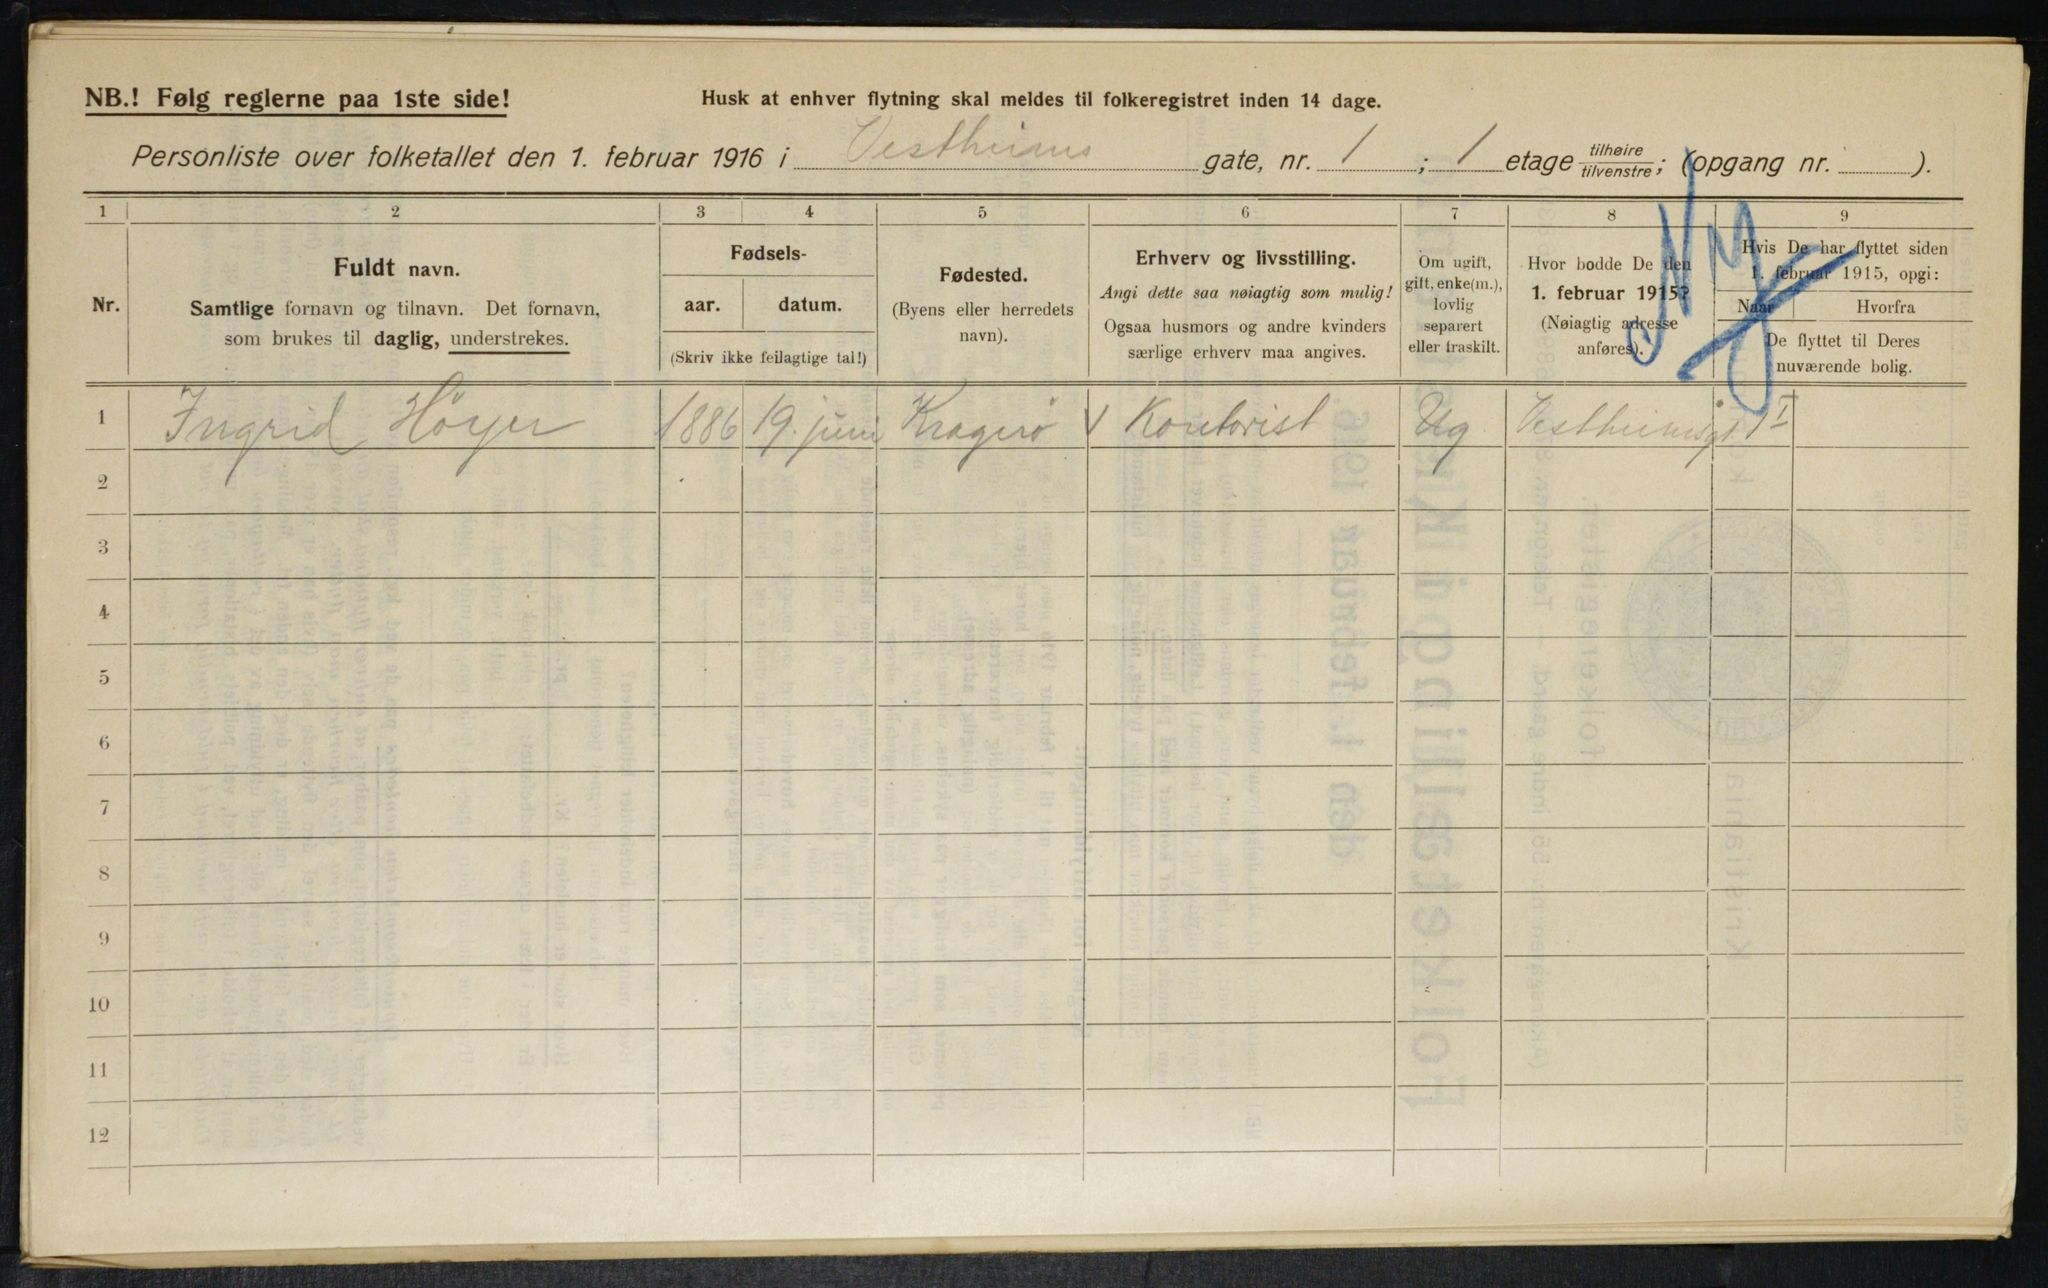 NB.! Følg reglerne paa 1ste side!
Husk at enhver flytning skal meldes til folkeregistret inden 14 dage.
Personliste over folketallet den 1. februar 1916 i Vestheims gate, nr. 1 ; 1 etage tilhøire/tilvenstre; (opgang nr. ).
1 2 3 4 5 6 7 8 9
Nr.
Fuldt navn.
Samtlige fornavn og tilnavn. Det fornavn,
som brukes til daglig, understrekes.
Fødsels-
aar. datum.
(Skriv ikke feilagtige tal!)
Fødested.
(Byens eller herredets
navn).
Erhverv og livsstilling.
Angi dette saa nøiagtig som mulig!
Ogsaa husmors og andre kvinders
særlige erhverv maa angives.
Om ugift,
gift, enke(m.),
lovlig
separert
eller fraskilt.
Hvor bodde De den
1. februar 1915?
(Nøiagtig adresse
anføres).
Hvis De har flyttet siden
1. februar 1915, opgi:
Naar Hvorfra
De flyttet til Deres
nuværende bolig.
Ny
1 Ingrid Höyer 1886 19. juni Kragerö v Kontorist Ug Vestheimsgt. 1 I
2
3
4
5
6
7
8
9
10
11
12